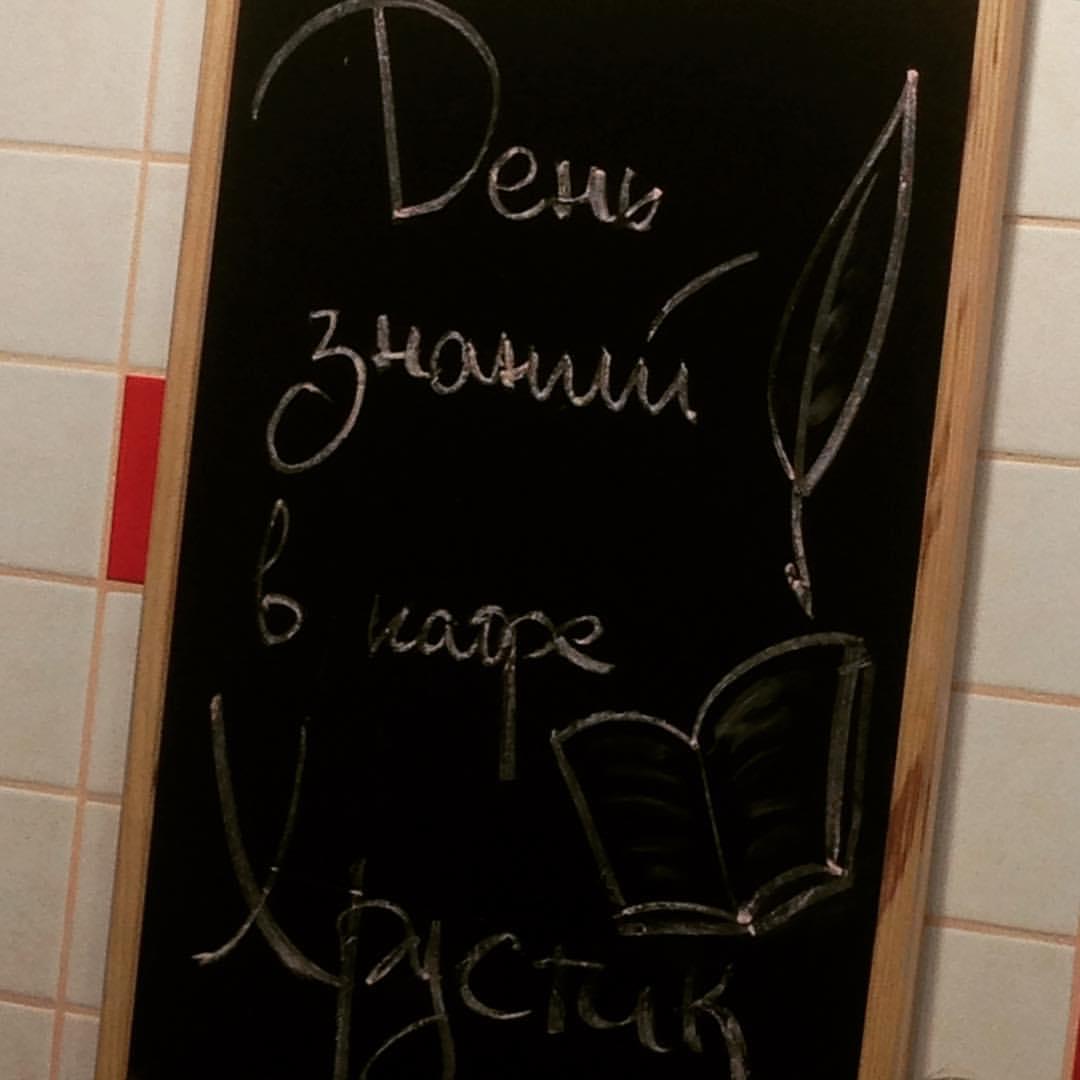 День
знаний
в кафе
Хрустик